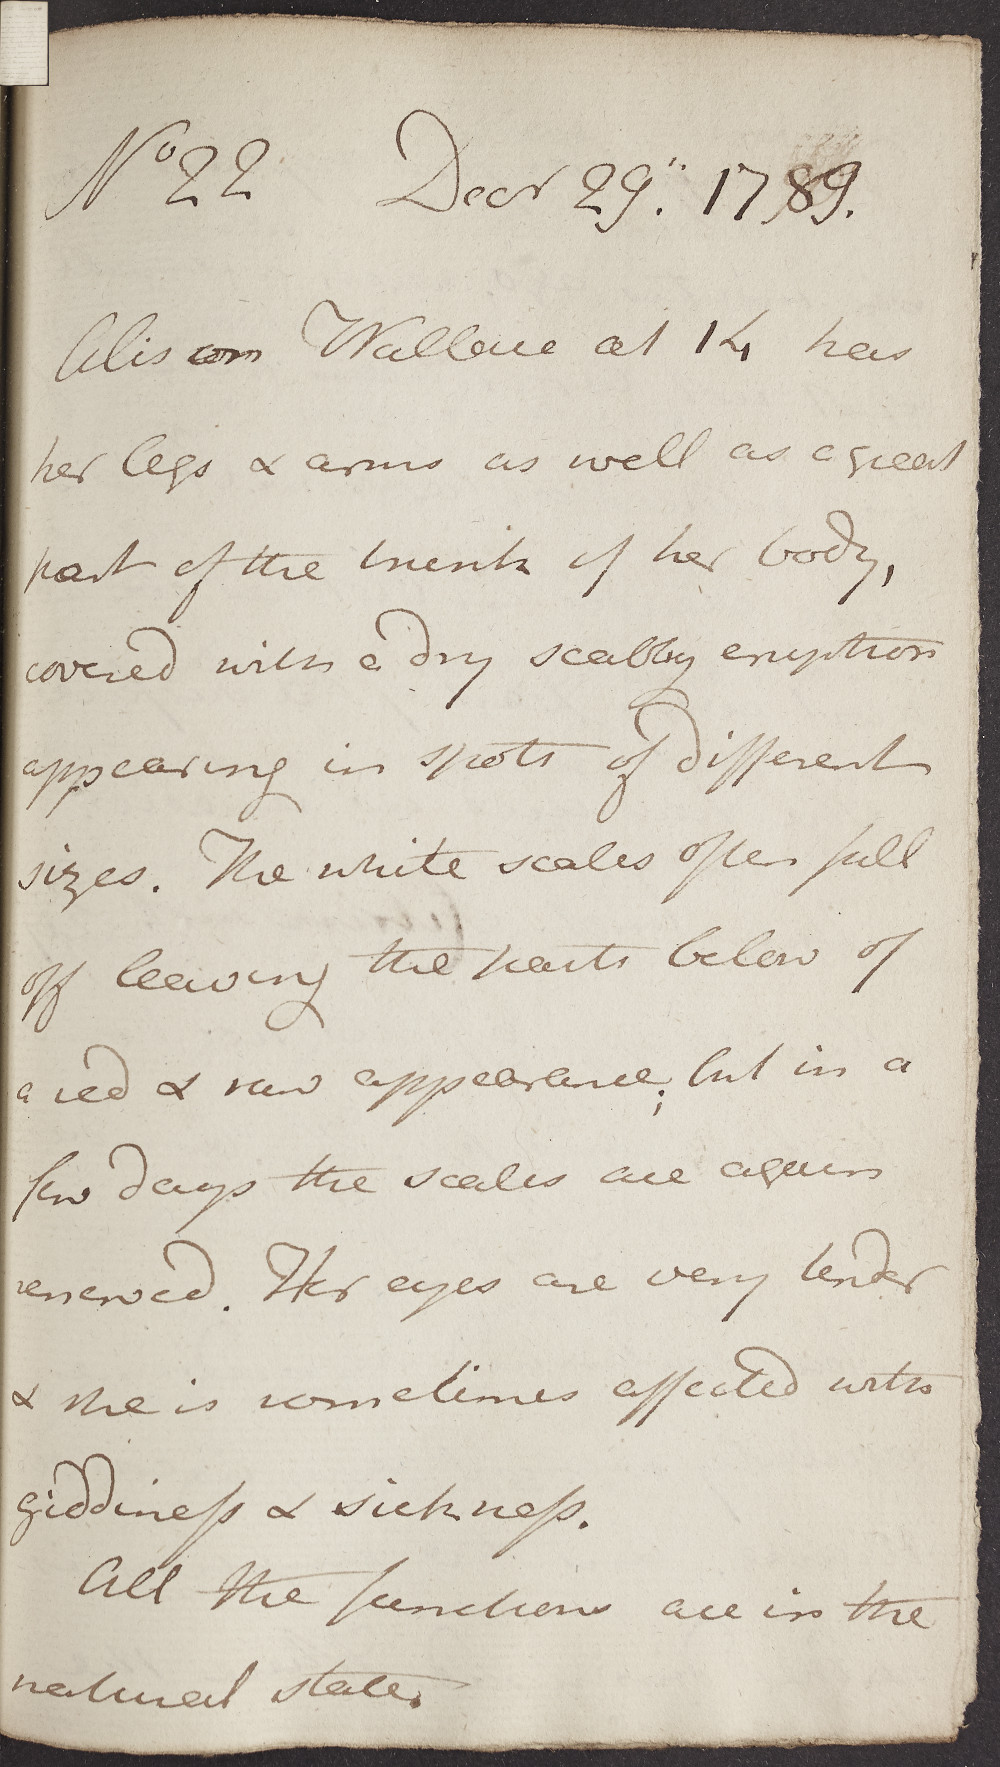 No 22 Decr 29. 1789.
Alison Wallace at 14 has
her legs & arms as well as a great
part of the trunk of her body,
covered with a dry scabby eruption
appearing in spots of different
sizes. The white scales often fall
off leaving the parts below of
a red & raw appearance; but in a
few days the scales are again
renewed. Her eyes are very tender
& she is sometimes affected with
giddiness & sickness.
All the functions are in the
natural state.